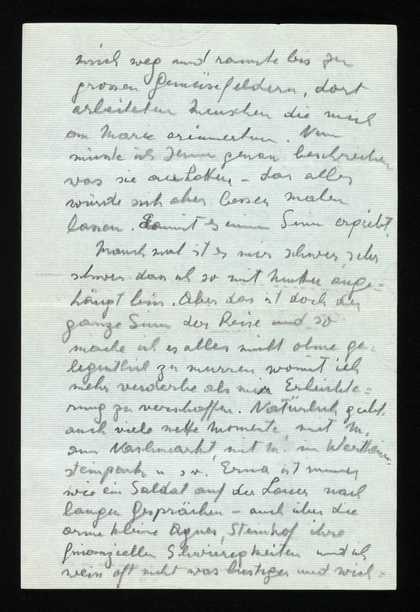 mich weg und rannte bis zu
grossen Gemüsefeldern, dort
arbeiteten Menschen die mich
an erinnerten. Nun
müsste ich Ihnen genau beschreiben
was sie anhatten – das alles
würde sich aber besser malen
lassen. Damit es einen Sinn ergiebt.
Manchmal ist es mir schwer sehr
schwer dass ich so mit Mutter ange-
hängt bin. Aber das ist doch der
ganze Sinn der Reise und so
mache ich es alles mit ohne ge-
legentlich zu murren womit ich
mehr verderbe als mir Erleichte-
rung zu verschaffen. Natürlich giebt
auch viele nette Momente, mit M.
am Naschmarkt, mit M. im
park u s w. Erna ist immer
wie ein Soldat auf der Lauer nach
langen Gesprächen – auch über die
arme kleine Agnes, Steinhof ihre
finanziellen Schwierigkeiten und ich
weiss oft nicht was lustiger und wich-